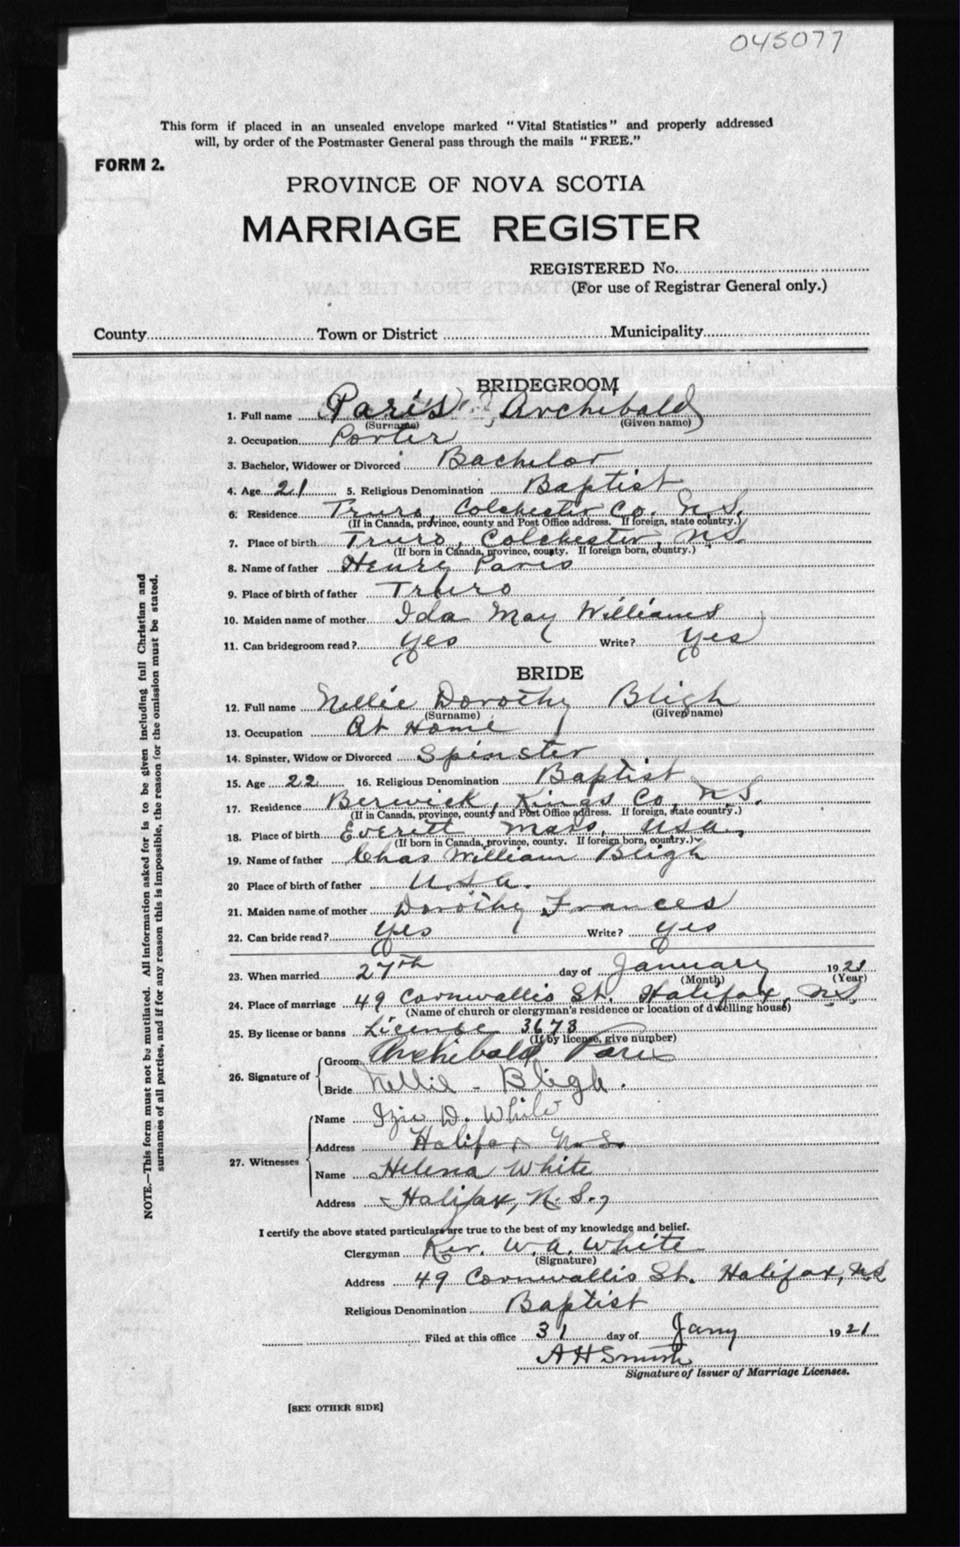 045077
This form if placed in an unsealed envelope marked "Vital Statistics" and properly addressed
will, by order of the Postmaster General pass through the mails "FREE."
FORM 2.
PROVINCE OF NOVA SCOTIA
MARRIAGE REGISTER
REGISTERED No.
(For use of Registrar General only.)
County Town or District Municipality
BRIDEGROOM
1. Full name Paris, Archibald
(Surname) (Given name)
2. Occupation Porter
3. Bachelor, Widower or Divorced Bachelor
4. Age 21 5. Religious Denomination Baptist
6. Residence Truro, Colchester Co. N.S.
(If in Canada, province, county and Post Office address. If foreign, state country.)
7. Place of birth Truro, Colchester N.S.
(If born in Canada, province, county. If foreign born, country.)
8. Name of father Henry Paris
9. Place of birth of father Truro
10. Maiden name of mother Ida May Williams
11. Can bridegroom read? Yes Write? Yes
BRIDE
12. Full name Nellie Dorothy Bligh
(Surname) (Given name)
13. Occupation At Home
14. Spinster, Widow or Divorced Spinster
15. Age 22 16. Religious Denomination Baptist
17. Residence Berwick, Kings Co, N.S.
(If in Canada, province, county and Post Office address. If foreign, state country.)
18. Place of birth Everett Mass, USA,
(If born in Canada, province, county. If foreign born, country.)
19. Name of father Chas William Bligh
20 Place of birth of father U.S.A.
21. Maiden name of mother Dorothy Frances
22. Can bride read? Yes Write? Yes
23. When married 27th day of January 1921
(Month) (Year)
24. Place of marriage 49 Cornwallis St. Halifax, N.S.
(Name of church or clergyman's residence or location of dwelling house)
25. By license or banns License 3673
(If by license, give number)
26. Signature of Groom Archibald Paris
Bride Nellie - Bligh.
27. Witnesses Name Izie D. White
Address Halifax N.S.
Name Helena White
Address Halifax, N.S.,
I certify the above stated particulars are true to the best of my knowledge and belief.
Clergyman Rev. W.A. White
(Signature)
Address 49 Cornwallis St. Halifax, N.S.
Religious Denomination Baptist
Filed at this office 31 day of Jany 1921
A H Smith
Signature of Issuer of Marriage Licenses.
[SEE OTHER SIDE]
NOTE.—This form must not be mutilated. All information asked for is to be given including full Christian and
surnames of all parties, and if for any reason this is impossible, the reason for the omission must be stated.